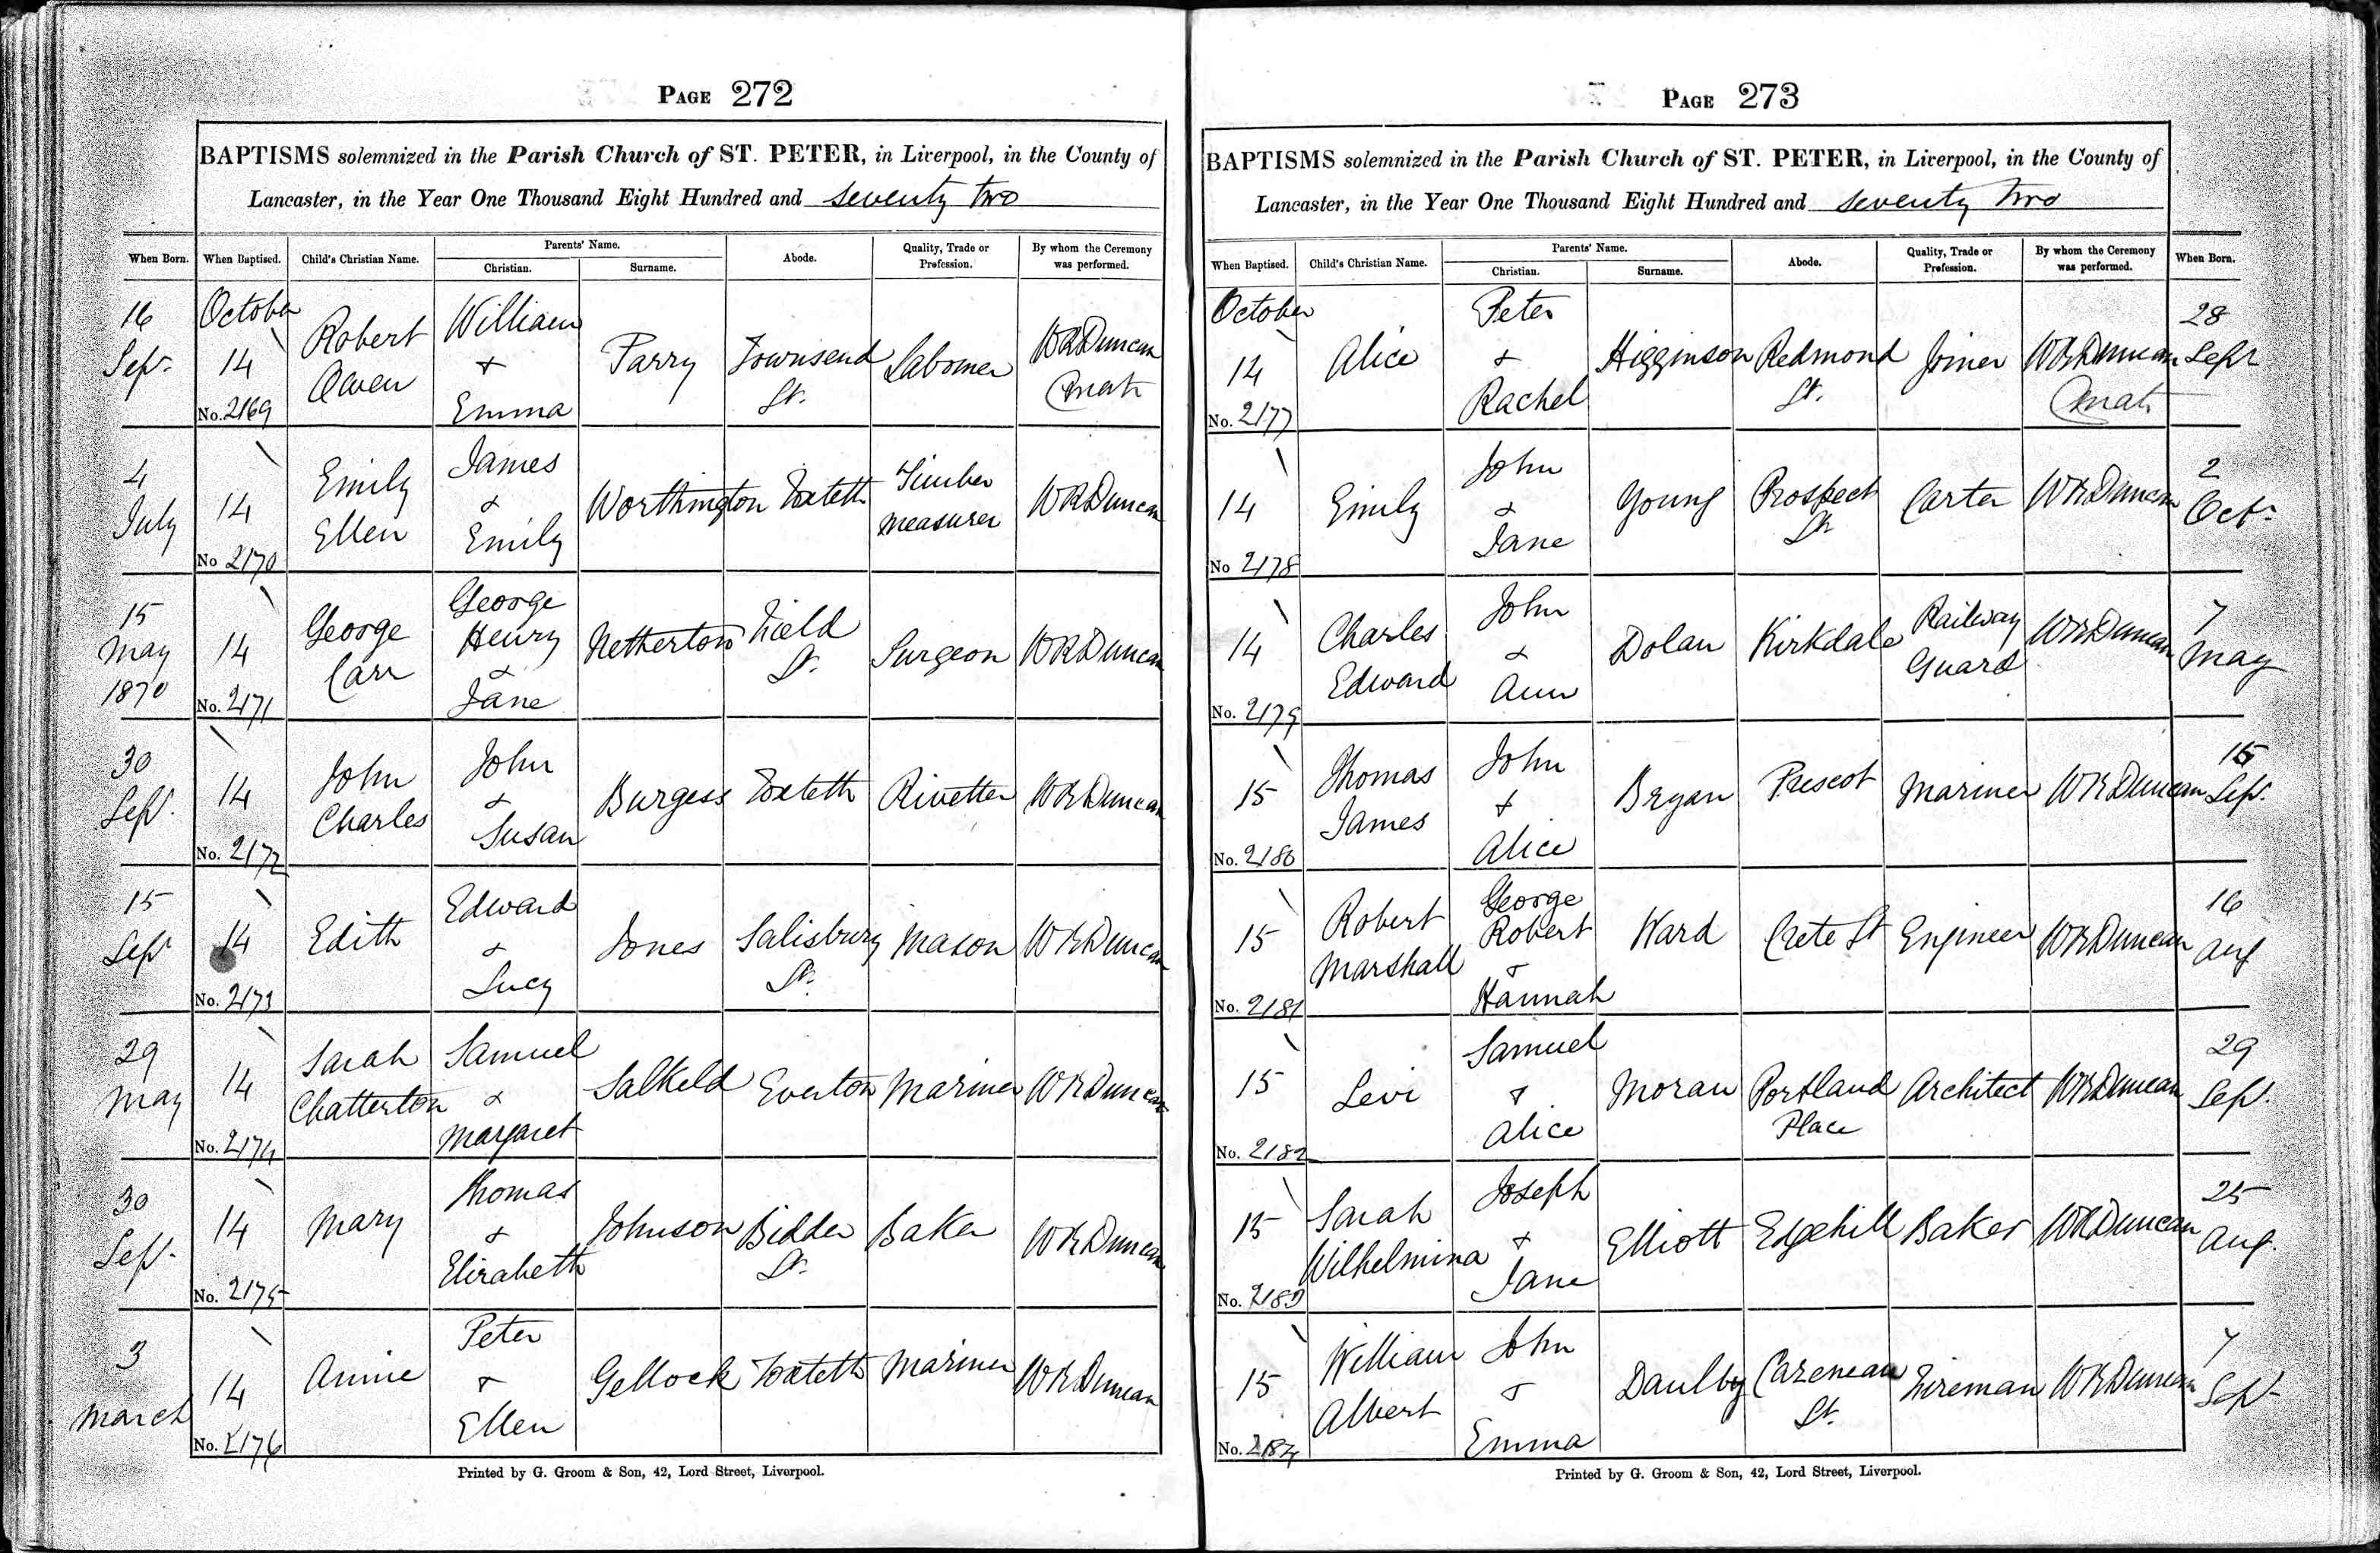 PAGE 272
BAPTISMS solemnized in the Parish Church of ST. PETER, in Liverpool, in the County of
Lancaster, in the Year One Thousand Eight Hundred and seventy two
When Born. When Baptised. Child's Christian Name. Parents' Name. Christian. Surname. Abode. Quality, Trade or Profession. By whom the Ceremony was performed.
16 Sep. October 14 No. 2169 Robert Owen William & Emma Parry Townsend St. Labourer W R Duncan Curate
4 July 14 No 2170 Emily Ellen James & Emily Worthington Toxteth Timber measurer W R Duncan
15 May 1870 14 No. 2171 George Carr George Henry & Jane Netherton Field St. Surgeon W R Duncan
30 Sep. 14 No. 2172 John Charles John & Susan Burgess Toxteth Rivetter W R Duncan
15 Sep 14 No. 2173 Edith Edward & Lucy Jones Salisbury St. Mason W R Duncan
29 May 14 No. 2174 Sarah Chatterton Samuel & Margaret Salkeld Everton Mariner W R Duncan
30 Sep. 14 No. 2175 Mary Thomas & Elizabeth Johnson Bidder St. Baker W R Duncan
3 March 14 No. 2176 Annie Peter & Ellen Gellock Toxteth Mariner W R Duncan
Printed by G. Groom & Son, 42, Lord Street, Liverpool.
PAGE 273
BAPTISMS solemnized in the Parish Church of ST. PETER, in Liverpool, in the County of
Lancaster, in the Year One Thousand Eight Hundred and seventy two
When Baptised. Child's Christian Name. Parents' Name. Christian. Surname. Abode. Quality, Trade or Profession. By whom the Ceremony was performed. When Born.
October 14 No. 2177 Alice Peter & Rachel Higginson Redmond St. Joiner W R Duncan Curate 28 Sept
14 No 2178 Emily John & Jane Young Prospect St Carter W R Duncan 2 Oct.
14 No. 2179 Charles Edward John & Ann Dolan Kirkdale Railway Guard W R Duncan 7 May
15 No. 2180 Thomas James John & Alice Bryan Prescot Mariner W R Duncan 15 Sep.
15 No. 2181 Robert Marshall George Robert & Hannah Ward Crete St Engineer W R Duncan 16 Aug
15 No. 2182 Levi Samuel & Alice Moran Portland Place Architect W R Duncan 29 Sep.
15 No. 2183 Sarah Wilhelmina Joseph & Jane Elliott Edgehill Baker W R Duncan 25 Aug.
15 No. 2184 William Albert John & Emma Daulby Cazeneau St. Fireman W R Duncan 7 Sep
Printed by G. Groom & Son, 42, Lord Street, Liverpool.